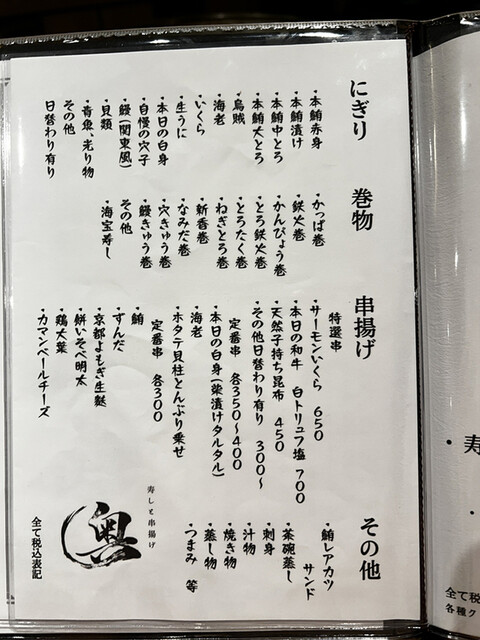 にぎり
・本鮪赤身
・本鮪漬け
・本鮪中とろ
・本鮪大とろ
・烏賊
・海老
・いくら
・生うに
・本日の白身
・自慢の穴子
・鰻(関東風)
・貝類
・青魚、光り物
その他
日替わり有り
巻物
・かっぱ巻
・鉄火巻
・かんぴょう巻
・とろ鉄火巻
・とろたく巻
・ねぎとろ巻
・新香巻
・なみだ巻
・穴きゅう巻
・鰻きゅう巻
その他
・海宝寿し
串揚げ
特選串
・サーモンいくら 650
・本日の和牛 白トリュフ塩 700
・天然子持ち昆布 450
・その他日替わり有り 300〜
定番串 各350〜400
・本日の白身(柴漬けタルタル)
・海老
・ホタテ貝柱とんぶり乗せ
定番串 各300
・鮪
・ずんだ
・京都よもぎ生麩
・餅いそべ明太
・鶏大葉
・カマンベールチーズ
その他
・鮪レアカツ
サンド
・茶碗蒸し
・刺身
・汁物
・焼き物
・蒸し物
・つまみ 等
寿しと串揚げ
奥
全て税込表記
・寿
・
全て税
各種ク